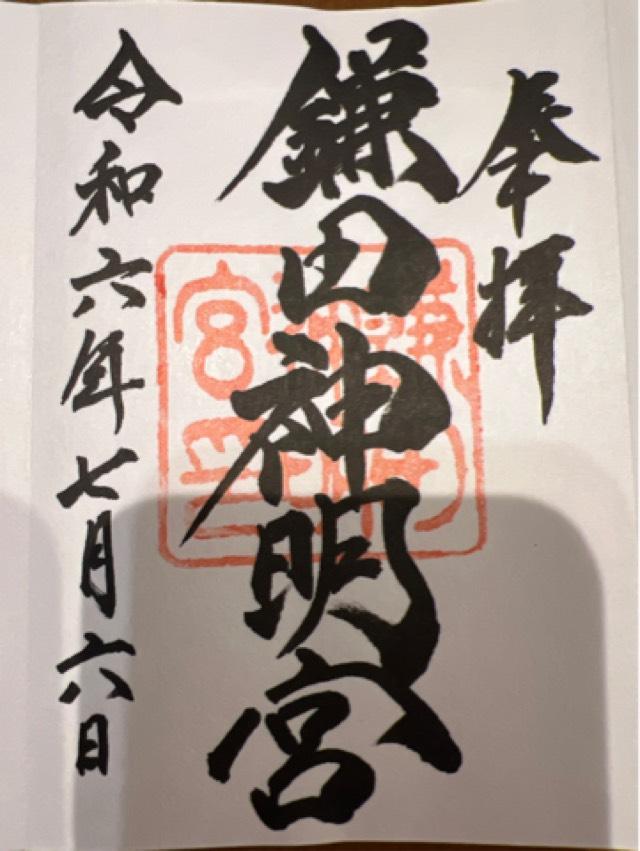 奉拝
鎌田神明宮
令和六年七月六日